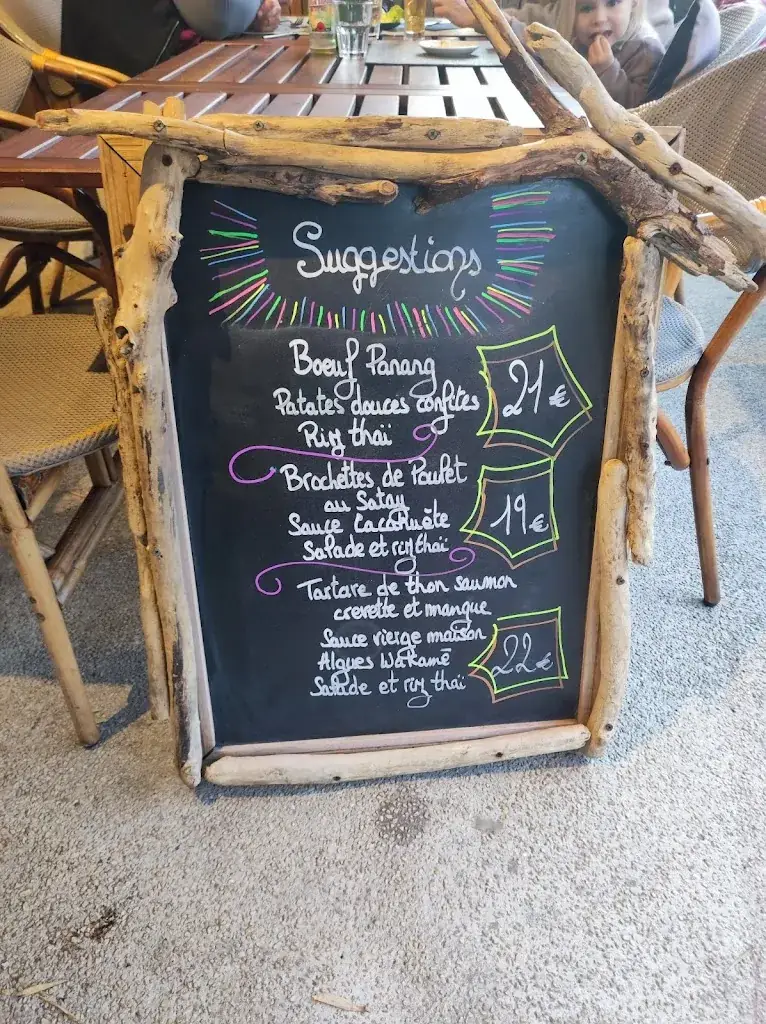 Suggestions
Boeuf Panang
Patates douces confites
Riz thaï
21€
Brochettes de Poulet
au Satay
Sauce Cacahuète
Salade et riz thaï
19€
Tartare de thon saumon
crevette et mangue
Sauce vierge maison
Algues Wakamé
Salade et riz thaï
22€